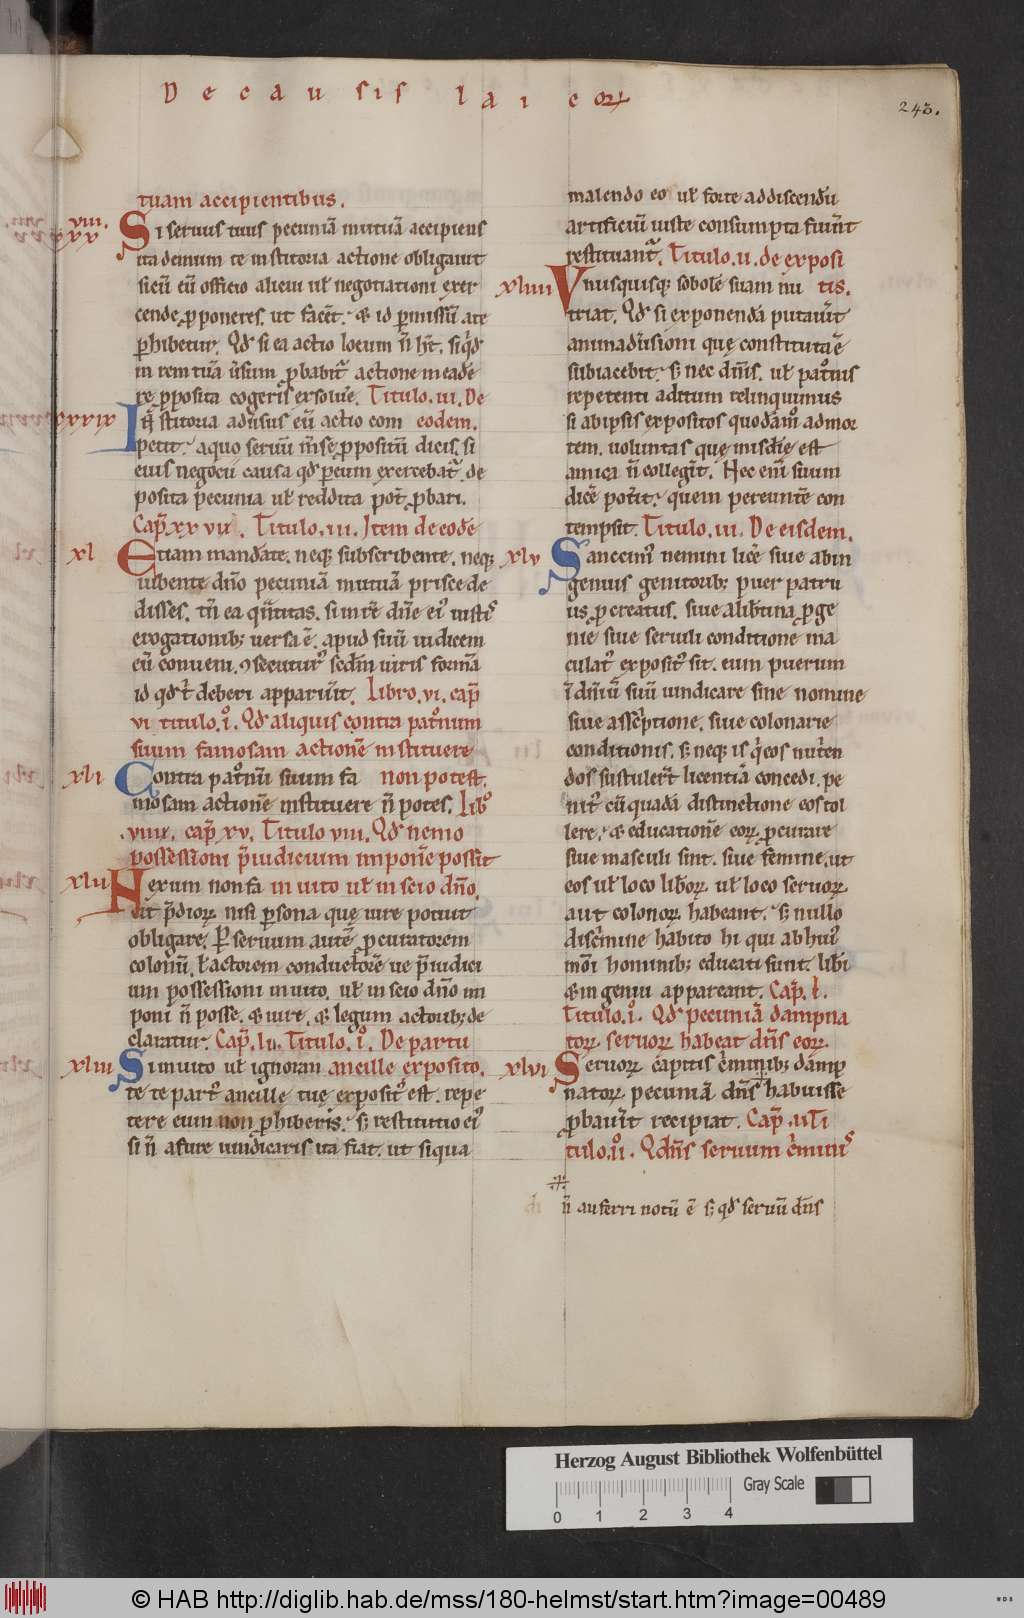 De causis laicoꝝ
243.
tuam accipientibus.
viii.
xxx
Si seruus tuus pecuniā mutuā accipiens
ita demum te institoria actione obligauit
si eū eū officio alicui uł negotiationi exer
cende ꝓponeres. ut facēt. ⁊ id ꝑmissū a te
ꝓhibetur. Qđ si ea actio locum ñ hꝫt. si qđ
in rem tuā uersum ꝓbabit̄ actione in ea de
re ꝓposita cogeris exsoluē. Titulo. iii. De
xxxix
Institoria aduersus eū actio com eodem.
petit. a quo seruū mēse ꝓpositū dicis. si
eius negocii causa qđ ꝑ eum exercebat̄ de
posita pecunia uł reddita pot̄. ꝓbari.
Cap̄. xxvii. Titulo. iii. Item de eodē
xl
Etiam mandāte. neqꝫ subscribente. neqꝫ
iubente dño pecuniā mutuā prisce de
disses. tñ ea quātitas. si in rē dñe eiꝰ iustiꝭ
erogationibꝫ uersa ē. apud suū iudicem
eū conueni. ꝯsecuturꝰ secđm iuris formā
id qđ t̄ deberi apparuerit. Libro. vi. cap̄
vi titulo. iͦ. Qđ aliquis contra patͦnum
suum famosam actionē instituere
xli
Contra patͦnū suum fa non potest.
mosam actionē instituere ñ potes. Libͦ
.viiii. cap̄ xv. Titulo viii. Qđ nemo
possessioni p̄iudicium imponē possit
xlii
Nexum non fa inuito uł inscio dño.
cit p̄dioꝝ nisi ꝑsona quę iure potuit
obligare. Ꝑ seruum autē ꝓcuratorem
colonū. ł actorem conductorē ue p̄iudici
um possessioni inuito. uł inscio dño im
poni ñ posse. ⁊ iure. ⁊ legum actoribꝫ de
claratur. Cap̄. lii. Titulo. iͦ. De partu
xliii
Si inuito uł ignoran ancille exposito.
te te partꝰ ancille tuę expositꝰ est. repe
tere eum non ꝓhiberis. sꝫ restitutio eiꝰ
si ñ a fure uindicaris ita fiat. ut si qua
in alendo eo uł forte addiscendū
artificiū iuste consumpta fuerīt
restituant̄. Titulo. ii. de exposi
xliiii
Vnusquisqꝫ sobolē suam nu tis.
triat. Qđ si exponendā putauerit
animaduersioni quę constituta ē
subiacebit. sꝫ nec dñis. uł patͦnis
repetenti aditum relinquimus
si ab ipsis expositos quodāmͦ ad mor
tem. uoluntas quę mīsdię est
amica ñ collegerit. Nec enī suum
dicē poterit. quem pereuntē con
tempsit. Titulo. iii. De eisdem.
xlv
Sanccimꝰ nemini licē siue ab in
genuis genitoribꝫ puer patru
us ꝓcreatus. siue a libertina ꝓge
nie siue seruili conditione ma
culatꝰ expositꝰ sit. eum puerum
ī dñiū suū uindicare sine nomine
siue assc̄ptione. siue colonarie
conditionis. sꝫ neqꝫ is q̇ eos nutrien
dos sustulerit licentiā concedi. pe
nitꝰ cū quadā distinctione eos tol
lere. ⁊ educationē eoꝝ ꝓcurare
siue masculi sint. siue femine. ut
eos uł loco liberoꝝ uł loco seruoꝝ
aut colonoꝝ habeant. sꝫ nullo
discrimine habito hi qui ab huiꝰ
modi hominibꝫ educati sunt. liberi
⁊ ingenui appareant. Cap̄. l.
Titulo. iͦ. Qđ pecuniā dampna
toꝝ seruoꝝ habeat dñs eoꝝ
xlvi
Seruoꝝ capitis criminibꝫ damp
natoꝝ pecuniā dñs habuisse
ꝓbauerit recipiat. Cap̄. ul Ti
tulo. ii. Qđ dñs seruum criminꝭ
ñ auferri notū ē sꝫ qđ seruū dñs
Herzog August Bibliothek Wolfenbüttel
Gray Scale
0 1 2 3 4
© HAB http://diglib.hab.de/mss/180-helmst/start.htm?image=00489